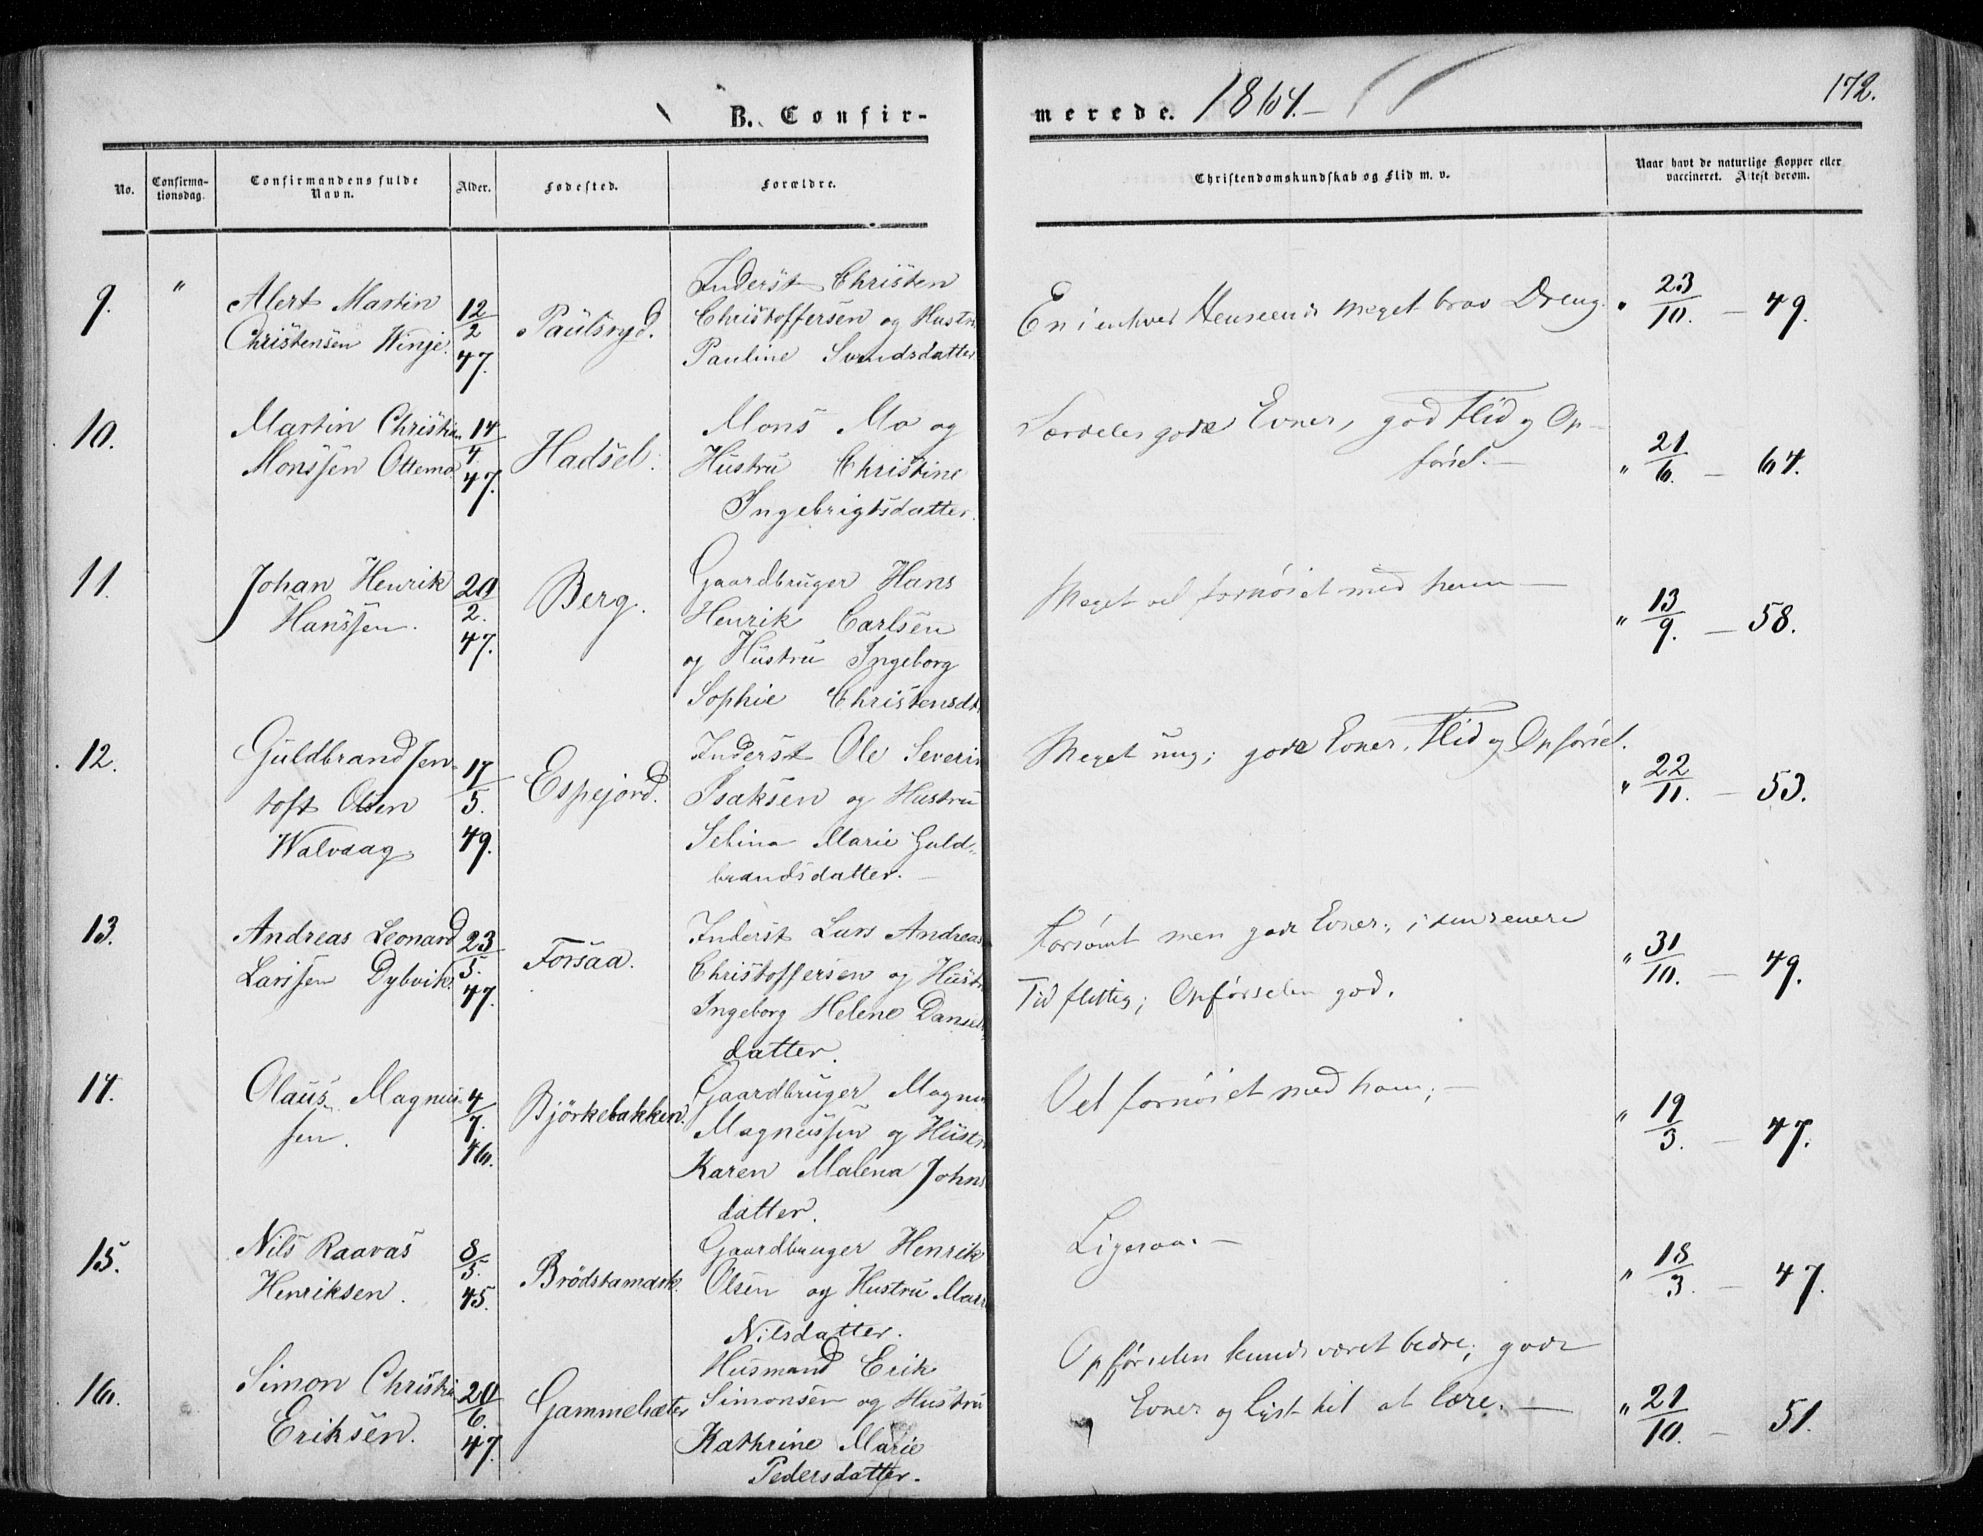 B. Confir-
merede. 1864.
172.
No.
Confirma-
tionsdag.
Confirmandens fulde
Navn.
Alder.
Fødested.
Forældre.
Christendomskundskab og Flid m. v.
Naar havt de naturlige Kopper eller
vaccineret. Attest derom.
9. " Alert Martin
Christensen Winje.
12/2 47.
Paulsryd.
Inderst Christen
Christoffersen og Hustru
Pauline Svendsdatter
En i enhver Henseende meget brav Dreng.
" 23/10. — 49.
10. Martin Christian
Monssen Ottemo
14/4. 47.
Hadsel.
Mons Mo og
Hustru Christine
Ingebrigtsdatter.
Særdeles gode Evner, god Flid og Op-
førsel. —
" 21/6. — 64.
11. Johan Henrik
Hanssen.
20/2. 47.
Berg.
Gaardbruger Hans
Henrik Carlsen
og Hustru Ingeborg
Sophie Christensdt.
Meget vel fornøiet med ham —
" 13/9. — 58.
12. Guldbrand
toft Olsen
Walvaag.
17/5. 49.
Espejord.
Inderst Ole Severin
Isaksen og Hustru
Marie Guld-
brandsdatter. —
Meget ung; gode Evner, Flid og Opførsel.
" 22/11. — 53.
13. Andreas Leonard
Larssen Dybvik.
23/5. 47.
Forsaa.
Inderst Lars Andreas
Christoffersen og Hustr
Ingeborg Helene Daniels
datter.
Forsømt men gode Evner; i den senere
Tid flittig; Opførselen god.
" 31/10. — 49.
14. Olaus Magnus
sen.
4/7. 46.
Björkebakken.
Gaardbruger Magnu
Magnussen og Hustru
Karen Malena Johns
datter.
Vel fornøiet med ham; —
" 19/3. — 47.
15. Nils Raavas
Henriksen.
8/5. 45.
Brödstamark.
Gaardbruger Henrik
Olsen og Hustru Mari
Nilsdatter.
Ligesaa. —
" 18/3. — 47.
16. Simon Christia
Eriksen.
20/6. 47.
Gammelsæter
Husmand Erik
Simonsen og Hustru
Kathrine Marie
Pedersdatter.
Opførselen kunde været bedre; gode
Evner og Lyst til at lære. —
" 21/10. — 51.